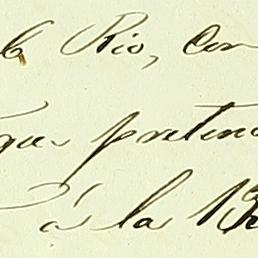 Rio, con
que pretend
á la B